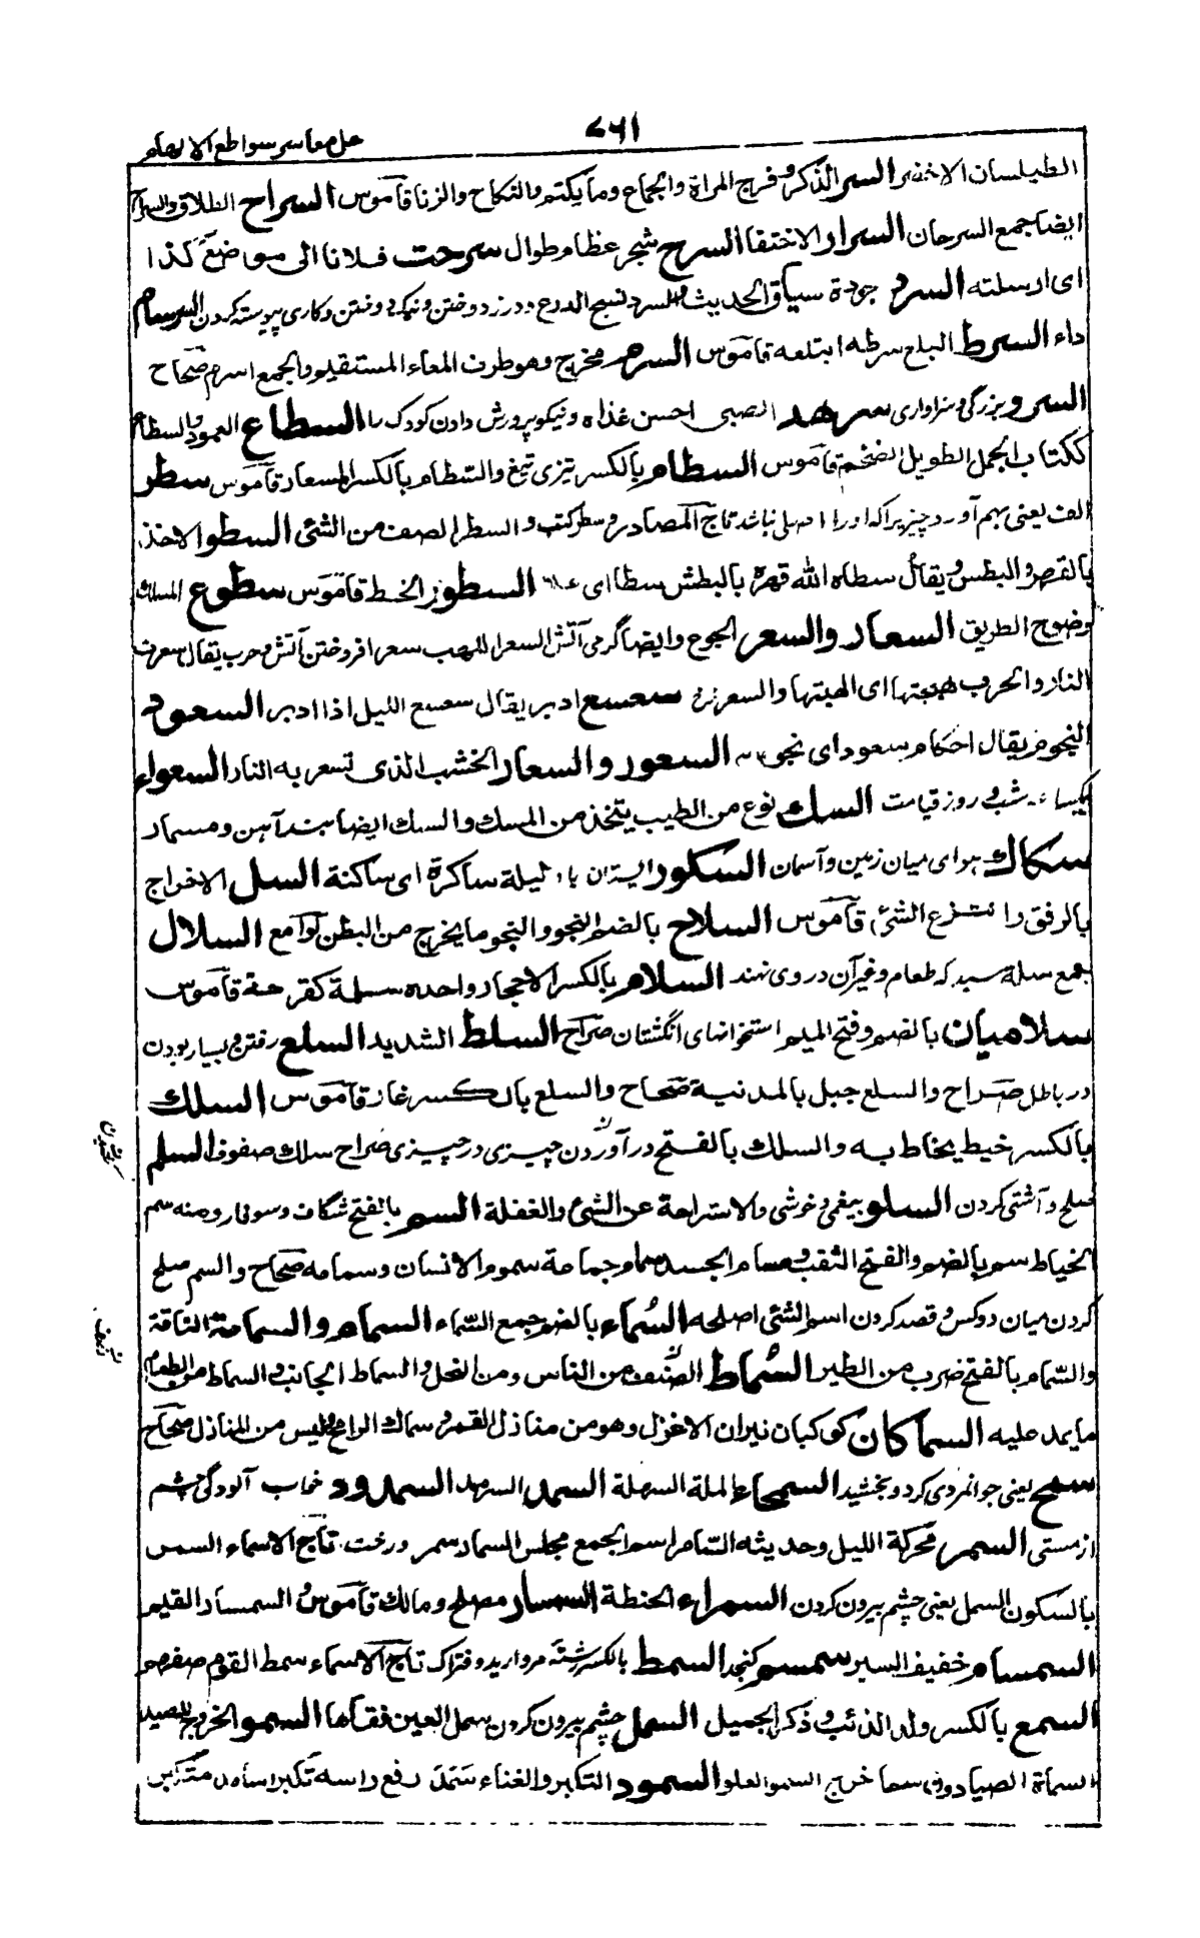 حل معاسر سواطع الالهام
۷۶۱
الطيلسان الاخضر السر الذكر وفرج المراة والجماع وما يكتم والنكاح والزنا قاموس السراح الطلاق والسراح
ايضا جمع السرحان السرار الاختفا السرح شجر عظام طوال سرحت فلانا الى موضع كذا
اى ارسلته السرد جودة سياق الحديث والسرد نسج الدرع ودرز دوختن و وختن وكارى پيوسته كردن السرسام
داء السرط البلع سرطه ابتلعه قاموس السرم مخرج وهو طرف المعاء المستقيم والجمع اسرم صحاح
السرو بزرگى وسزاوارى سرهد الصبى احسن غذاه ونيكو پرورش دادن كودك را السطاع العمود والسطاع
ككتاب الجمل الطويل الضخم قاموس السطام بالكسر تيزى تيغ والسطام بالكسر المسعار قاموس سطر
الف يعنى بهم آورد چيز يراكه اورا اصلى نباشد تاج المصادر وسطر كتب والسطر الصف من الشئ السطو الاخذ
بالقهر والبطش ويقال سطاه الله قهره بالبطش سطا اى السطور الخط قاموس سطوع
وضوح الطريق السعار والسعر الجوع وايضا گرمى آتش السعر اللهب سعر افروختن آتش وحرب يقال سعرت
النار والحرب هيجتها اى الهبتها والسعر نرخ سعسع ادبر يقال سعسع الليل اذا ادبر السعود
النجوم يقال احكام سعود اى نجوم السعور والسعار الخشب الذى تسعر به النار السعواء
شب و روز قيامت السك نوع من الطيب يتخذ من المسك والسك ايضا بند آهن ومسمار
سكاك هواى ميان زمين وآسمان السكور ايستادن باد ليلة ساكرة اى ساكنة السل الاخراج
بالرفق وانتزع الشئ قاموس السلاح بالضم النجو والنجو ما يخرج من البطن لوامع السلال
جمع سلة سبد كه طعام وغيرآن دروى نهند السلام بالكسر الاحجار واحده سلمة كفرحة قاموس
سلاميان بالضم وفتح الميم استخوانهاى انگشتان صراح السلط الشديد السلع رفتن وبسيار بودن
در باطل صراح والسلع جبل بالمدنية صحاح والسلع بالكسر غار قاموس السلك
بالكسر خيط يخاط به والسلك بالفتح درآوردن چيزى در چيزى صراح سلك صفوف السلم
صلح وآشتى كردن السلو بيغمى وخوشى والاستراحة عن الشئ والغفلة السم بالفتح شگاف وسوفار ومنه سم
الخياط سم بالضم والفتح الثقب ومسام الجسد سمام جماعة سموم الانسان وسمامه صحاح والسم صلح
كردن ميان دوكس وقصد كردن اسم الشئ اصلحه السُماء بالضم جمع السماء السمام والسمامة الناقة
والسمام بالفتح ضرب من الطير السُماط الصنف من الناس ومن النحل والسماط الجانب والسماط من الطعام
ما يمد عليه السماكان كوكبان نيران الاعزل وهو من منازل القمر وسماك الرامح وليس من المنازل صحاح
سمح يعنى جوانمردى كرد وبخشيد السمحاء الملة السهلة السمد السرمد السمدود خواب آلودگى چشم
از مستى السمر محركة الليل وحديثه السامر اسم الجمع مجلس السمار سمر درخت تاج الاسماء السمس
بالسكون السمل يعنى چشم بيرون كردن السمراء الحنطة السمسار مصلح ومالك قاموس والسمسار القيم
السمسام خفيف السير سمسم كنجد السمط بالكسر رشتهٔ مرواريد وفتراك تاج الاسماء سمط القوم صفرهم
السمع بالكسر ولد الذئب وذكر الجميل السمل چشم بيرون كردن سمل العين فقأها السمو الخروج للصيد
السماة الصيادون سما خرج السمو العلو السمود التكبر والغناء سَمَدَ رفع راسه تكبرا سامد متكبر